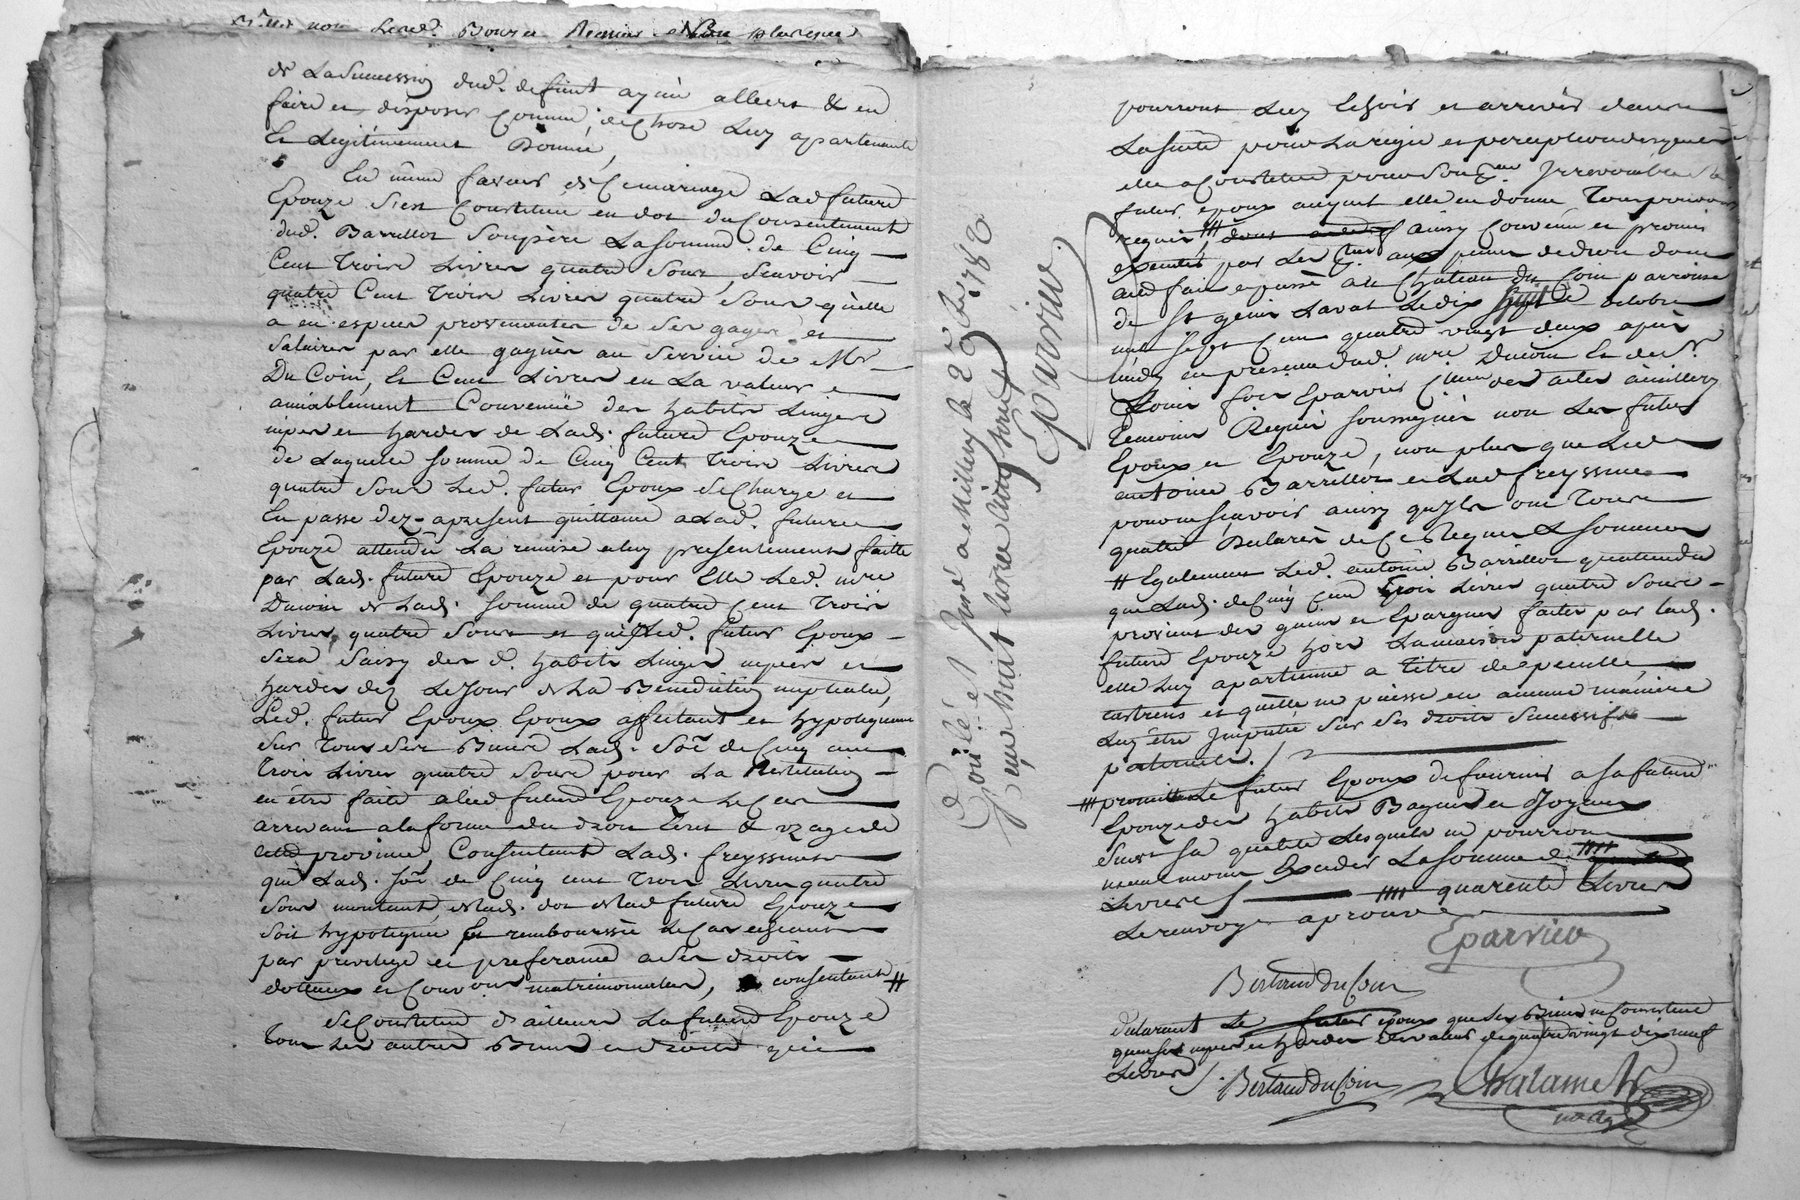 de La Succession dud. defunt ayeu allers & en
faire et disposer Comme, de Chose Luy apartenante
Et Legitimement Donnée,
En même faveur de Ce mariage Lad future
Epouze s'est Constituée en dot du Consentement
dud. Barrillot Son père La Somme de Cinq
Cent Trois Livres quatre Sous, Scavoir
quatre Cent Trois Livres quatre Sous qu'elle
a en espèces provenantes de Ses gages et
Salaires par elle gagnés au Service de Mr
Du Coin, Et Cent Livres en La valeur
amiablement Convenüe des habits Linges
nipes et hardes de Lad. future Epouze
de Laquelle Somme de Cinq Cent Trois Livres
quatre Sous Led. futur Epoux Se Charge et
En passe dez-apresent quittance a Lad. future
Epouze attendu La remise a luy presentement faitte
par Lad. future Epouze et pour Elle Led. mre
Ducoin de Lad. Somme de quatre Cent Trois
Livres quatre Sous et que Led. futur Epoux
Sera Saisy des d. habits Linges nipes et
hardes dez Le Jour de La Bénédiction nuptialle,
Led. futur Epoux Epoux affectant et hypotequant
Sur Tous Ses Biens Lad. Soe de Cinq cent
Trois Livres quatre Sous pour La Restitution
en être faite a lad future Epouze Le Cas
arrivant a la forme du droit Ecrit & uzage de
cette province, Consentant Lad. freyssinet
que Lad. Soe de Cinq cent Trois Livres quatre
Sous montant de lad. dot de lad future Epouze
Soit hypotequée Et remboursée Le Cas echeant
par privilege et preferance a Ses droits
dotteaux et Conv ons matrimonialles, consentant #
Se Constitue d'ailleurs La future Epouze
Tous Les autres Biens et droits qui
Controllé et Insé a Millery le 29 8bre 1782
Reçu huit livres cinq sous
Eparvier
pourront Luy Echoir et arriver dans
La Suitte pour La regie et perception desquels
elle a Constitué pour Son Irrevocable Le
futur epoux auquel elle en donne Tout pouvoir
requis, #### ainsy Convenu et promis
executer par Les aux peines de droit dont
acte fait et passé au Chateau du Coin parroisse
de St genis Laval Le dix Sept octobre
mil Sept Cent quatre vingt deux après
midy en presence dud. mre Ducoin Et de Sr
Eparvier des actes a millery
Temoins Requis Soussignés non Les futurs
Epoux et Epouze, non plus que Led
antoine Barrillot et Lad freyssinet
pour ne Scavoir ainsy qu'ils ont Tous
quatre Declaré de Ce Requis & Sommés
# Egalement Led. antoine Barrillot qu'attendu
que Lad. de Cinq Cent Trois Livres quatre Sous
provient des gains et Epargnes faites par lad.
future Epouze hors La maison paternelle
elle Luy apartienne a Titre de pecule
castrens et qu'elle ne puisse en aucune maniere
Luy être Imputée Sur Ses droits Successifs
paternels.
#### promet Le futur Epoux de fournir a Sa future
Epouze des habits Bagues et Joyaux
Suivt Sa qualité Lesquels ne pourront
neanmoins Exceder La Somme de ####
Livres #### quarente Livres
Le renvoy aprouvé
Eparvier
Bertrand du Coin
declarant Le futur epoux que Ses Biens ne Consistent
qu'en Ses nipes et hardes de valeur de quatre vingt dix neuf
Livres
Bertrand du Coin
Chalamel